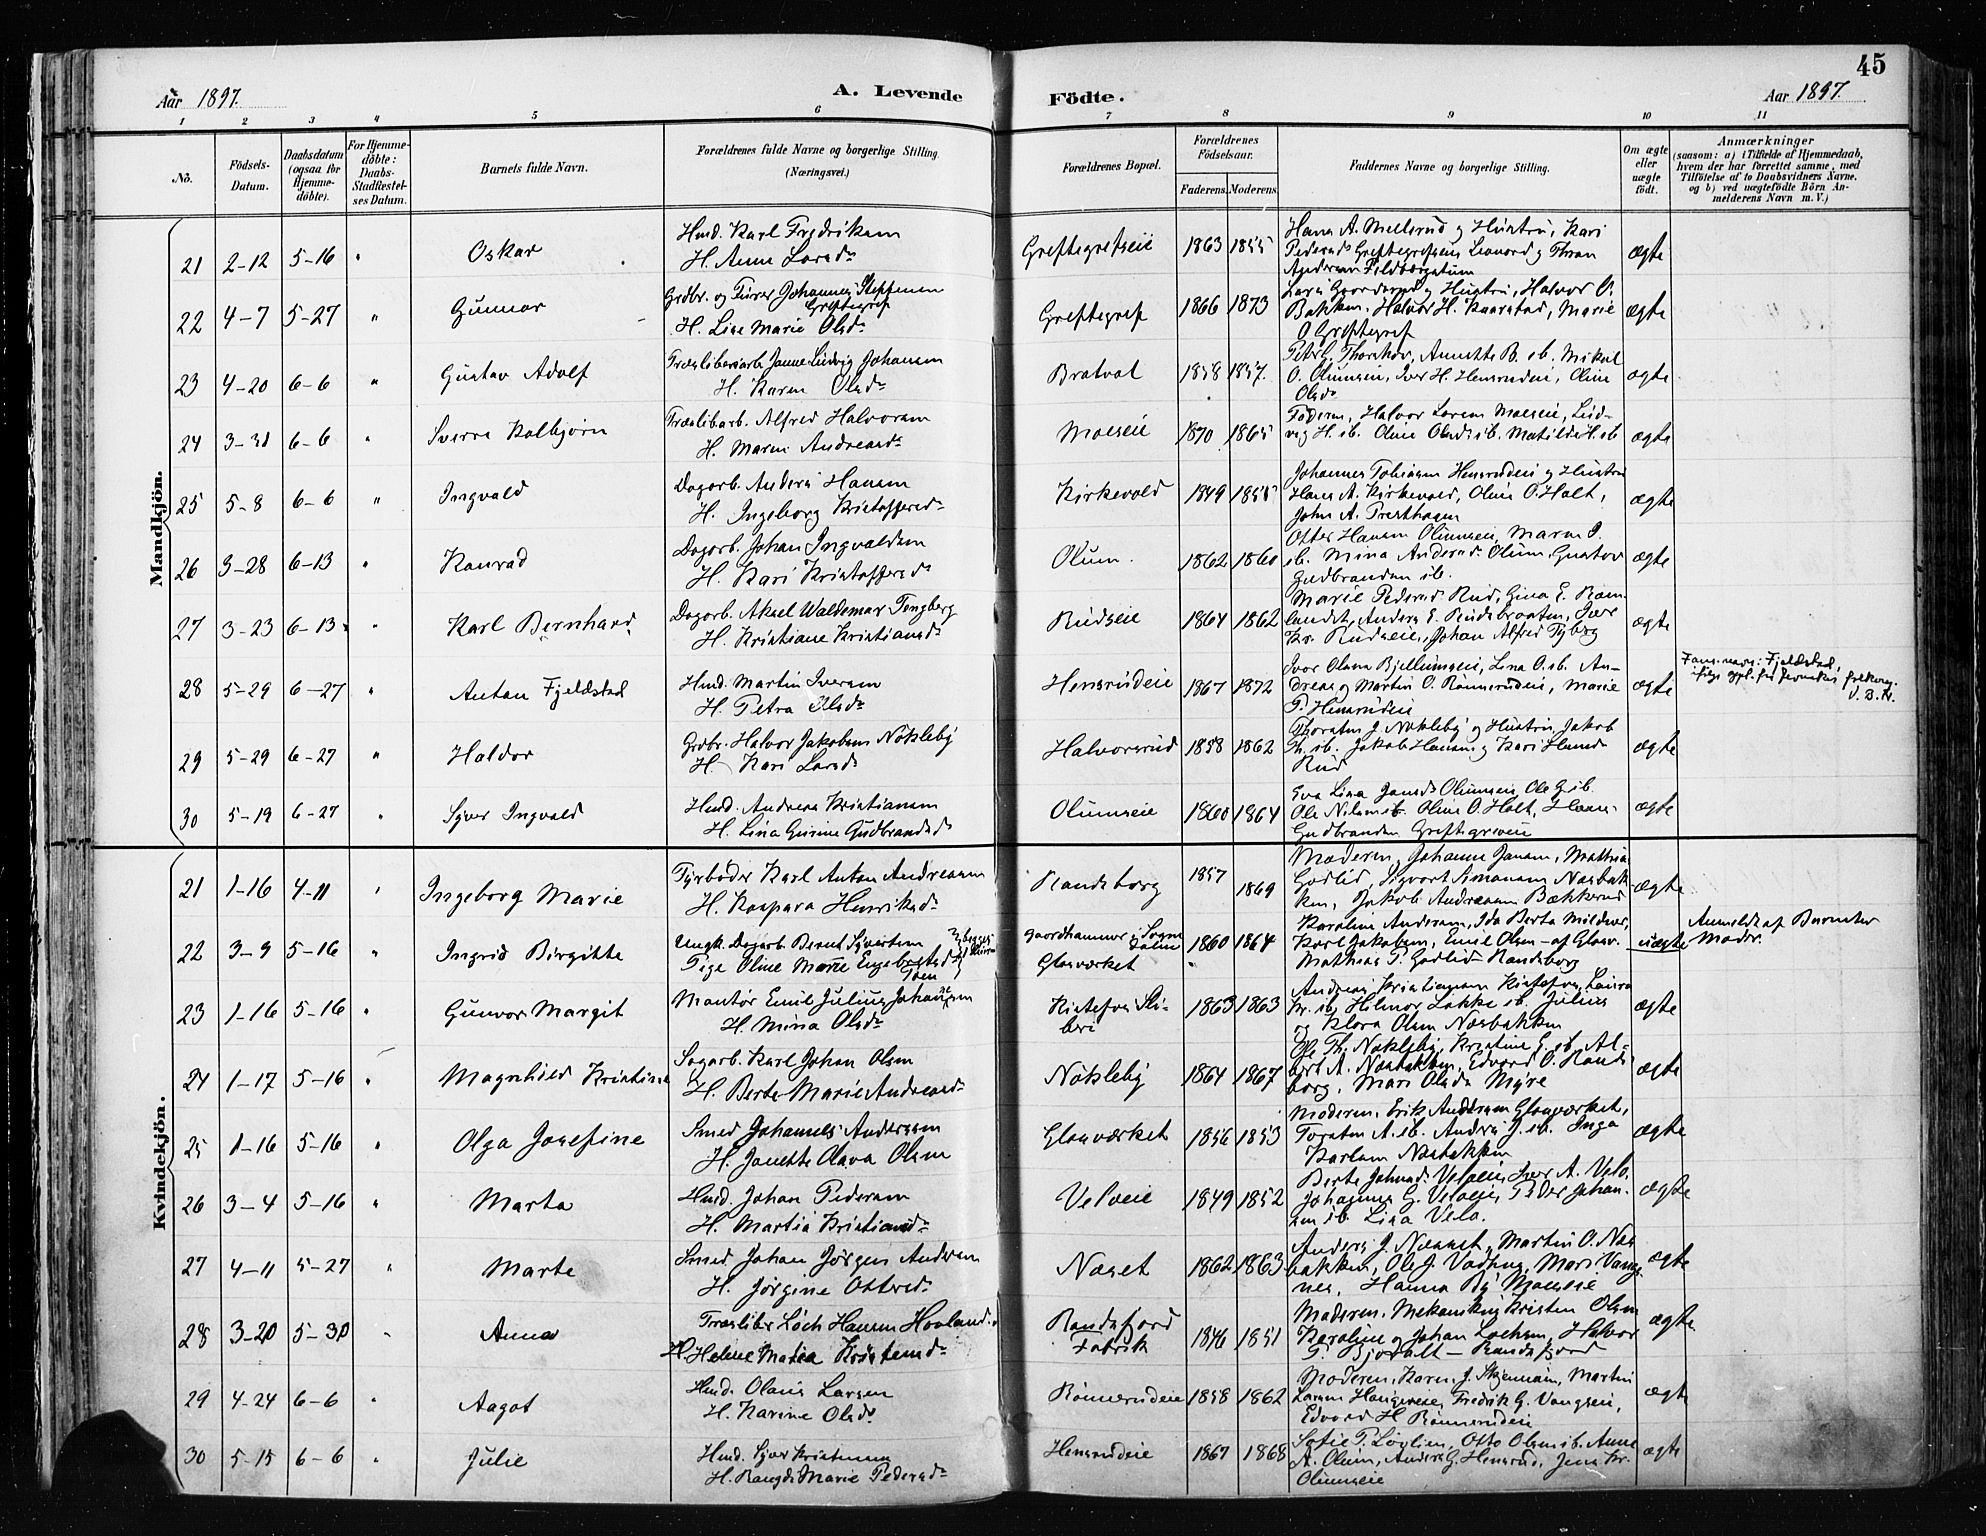 45
Aar 1897. A. Levende Födte. Aar 1897.
1 2 3 4 5 6 7 8 9 10 11
No.
Födsels-Datum.
Daabsdatum (ogsaa for Hjemmedöbte).
For Hjemmedöbte: Daabs-Stadfestelses Datum.
Barnets fulde Navn.
Forældrenes fulde Navne og borgerlige Stilling. (Næringsvei.)
Forældrenes Bopæl.
Forældrenes Födselsaar.
Faderens. Moderens.
Faddernes Navne og borgerlige Stilling.
Om ægte eller uægte födt.
Anmærkninger
(saasom: a) i Tilfælde af Hjemmedaab, hvem der har forrettet samme, med Tilföielse af to Daabsvidners Navne, og b) ved uægtefödte Börn Anmelderens Navn m. V.)
Mandkjön.
21 2-12 5-16 " Oskar
Hmd. Karl Fredriksen
H. Anne Larsdr
Greftegrefseie 1863 1855
Hans A. Mellerud og Hustru, Kari
ægte
22 4-7 5-27 " Gunnar
Grdbr. og Furer Johannes Steffensen Greftegref
H. Lise Marie Olsdr
Greftegref 1866 1873
Bakken. Halvor H. Kaarstad, Marie
O Greftegref
ægte
23 4-20 6-6 " Gustav Adolf
Træsliberiarb. Janne Ludvig Johansen
H. Karen Olsdr
Bratvat 1858 1857.
O. Olumseie, Iver H. Hensrudeie, Oline
Olsdr
ægte
24 3-31 6-6 " Sverre Kolbjørn
Træslibarb. Alfred Halvorsen
H. Maren Andreasdr
Moeseie 1870 1865
Faderen, Halvor Larsen Moeseie, Lud-
vig H. ib. Oline Olsd. ib. Matilde H. ib
ægte
25 5-8 6-6 " Ingvald
Dagarb. Anders Hansen
H. Ingeborg Kristoffersdr
Kirkevold 1849 1855
Johannes Tobiasen Hensrudeie og Hustru
Hans A. Kirkevold, Oline O. Holt,
John A. Presthagen
ægte
26 3-28 6-13 " Konrad
Dagarb. Johan Ingvaldsen
H. Kari Kristoffersdr
Olum. 1862 1860
Otter Hansen Olumseie, Maren O.
ib. Mina Andersd. Olum, Gustav
Gudbrandsen ib.
ægte
27 3-23 6-13 " Karl Bernhard
Dagarb. Aksel Waldemar Tengberg
H. Kristiane Kristiansdr
Rudseie 1864 1862
Marie Pedersd Rud, Gina E. Ram-
landst, Anders E. Rudsbraaten, Iver
Kr. Rudseie, Johan Alfred Fyberg
ægte
28 5-29 6-27 " Anton Fjeldstad
Hmd. Martin Iversen
H. Petra Olsdr
Hensrudeie 1867 1872
Iver Olsen Bjellumseie, Lina O. ib. An-
dreas og Martin O. Rønnerudeie, Marie
P. Hensrudeie
ægte
Fam.navn: Fjeldstad,
29 5-29 6-27 " Haldor
Grdbr. Halvor Jakobsen Nøkleby
H. Kari Larsdr
Halvorsrud 1858 1862
Thorsten J. Nøkleby og Hustru, Jakob
Th. ib. Jakob Hansen og Kari Hansdr
Rud
ægte
30 5-19 6-27 " Syver Ingvald
Hmd. Andreas Kristiansen
H. Lina Gurine Gudbrandsdr
Olumseie 1860 1864
Eva Lina Jansdr Olumseie Ole G. ib.
Ole Nilsen ib. Oline O. Holt, Hans
Gudbrandsen Greftegrefseie
ægte
Kvindekjön.
21 1-16 4-11 " Ingeborg Marie
Fyrbøder Karl Anton Andreassen
H. Kaspara Henriksdr
Randsborg 1857 1869
Moderen, Johanne Jansen, Mathia
Godlid, Sigvart Amansen Næsbak-
ken, Jakob Andreassen Bækkerud
ægte
22 3-9 5-16 " Ingrid Birgitte
Ungk. Dagarb. Bernt Syvertsen
Pige Oline Marie Engebretsdr
Gaardhammer i Sogndalen
Glasværket 1860 1864
Karoline Andersen, Ida Berta Mildner,
Karl Jakobsen, Emil Olsen - af Glasv.
Mathias P. Godlid - Randsborg
uægte
Anmeldt af Barnets
Moder.
23 1-16 5-16 " Gunvor Margit
Montør Emil Julius Johansen
H. Mina Olsdr
Kistefos Sliberi 1863 1863
Andreas Kristiansen Kistefos, Laura
Kr. ib, Hilmar Løkke ib. Julius
og Klara Olsen Næsbakken
ægte
24 1-17 5-16 " Magnhild Kristine
Sagarb. Karl Johan Olsen
H. Berte Marie Andreasdr
Nøkleby 1864 1867
Ole Th. Nøkleby, Kristine E. ib. Al-
bert A. Næsbakken, Edvard O. Rands-
borg, Mari Olsdr Myre
ægte
25 1-16 5-16 " Olga Josefine
Smed Johannes Anderssen
H. Janette Olava Olsen
Glasværket 1856 1853
Moderen, Erik Andersen Glasværket,
Torsten A. ib. Anders J. ib. Inga
Karlsen Næsbakken
ægte
26 3-4 5-16 " Marta
Hmd. Johan Pedersen
H. Martia Kristiansdr
Veloeie 1849 1852
Berte Johnsd. Veloeie, Iver A. Velo,
Johannes G. Veloeie, Peder Johan-
sen ib. Lina Velo.
ægte
27 4-11 5-27 " Marte
Smed Johan Jørgen Andersen
H. Jørgine Ottersdr
Næset 1862 1863
Anders J. Næsset, Martin O. Næs-
bakken, Ole J. Vadhus, Mari Vang-
nes, Hanna By Moeseie
ægte
28 3-20 5-30 " Anna
Træslibr Loch Hansen Hovland
H. Helene Matea Kristensdr
Randsfjord Fabrik 1846 1851
Moderen, Mekanikus Kristen Olsen
Karoline og Johan Lochsen, Halvor
P. Bjodalt - Randsfjord
ægte
29 4-24 6-6 " Aagot
Hmd. Olaus Larsen
H. Karine Olsdr
Rønnerudeie 1858 1862
Moderen, Karen J. Skjennum, Martin
Larsen Haugereie, Fredrik G. Vangseie,
Edvard H Rønnerudeie
ægte
30 5-15 6-6 " Julie
Hmd. Syver Kristensen
H. Rangdi Marie Pedersdr
Hensrudeie 1867 1868
Sofie P. Løvlien, Otto Olsen ib. Anne
A. Olum, Anders G. Hensrud, Jens Kr.
Olumseie
ægte